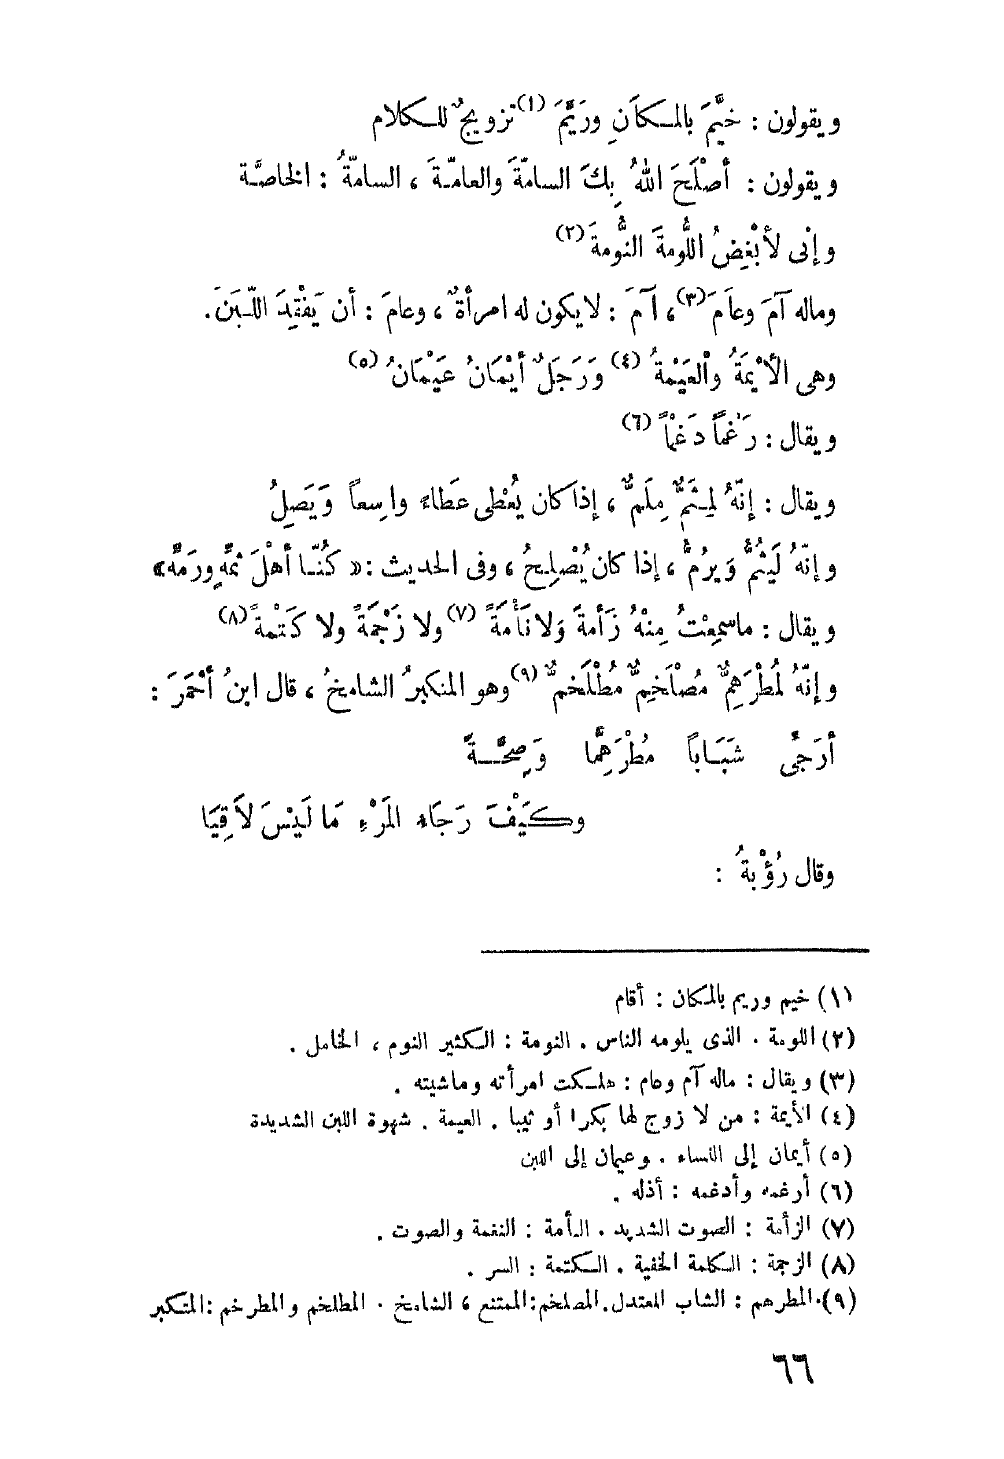 ويقولون : خَيَّمَ بالمـكاَنِ ورَيَّمَ (١) تزويجٌ للـكلام
ويقولون : أصْلَحَ اللهُ بِكَ السامّةَ والعامّـةَ ، السامّةُ : الخاصَّة
وإنى لأبْغِضُ اللُّومةَ النُّومةَ (٢)
وماله آمَ وعاَمَ (٣) ، آمَ : لايكون له امرأةٌ ، وعامَ : أن يَفْقِدَ اللّـبَنَ .
وهى الأيْمَةُ والعَيْمةُ (٤) وَرَجَلٌ أيْمَانُ عَيْمَانُ (٥)
ويقال : رَغْماً دَغْماً (٦)
ويقال : إنّهُ لِمثَمٌّ مِلَمٌّ ، إذا كان يُعْطِى عَطاءً واسِعاً وَيَصِلُ
وإنّهُ لَيَثُمُّ وَيرُمُّ ، إذا كان يُصْلِحُ ، وفى الحديث : « كُنّـا أهْلَ ثمِّهٍ ورَمِّه »
ويقال : ماسمِعْتُ مِنْهُ زَأمةَ وَلا نَأْمَةً (٧) ولا زَجْمَةً ولا كَتْمةً (٨)
وإنّهُ لمُطْرَهِمٌّ مُصْلَخِمٌّ مُطْلَخمٌّ (٩) وهو المتكبرُ الشامخُ ، قال ابنُ أحْمَرَ :
أرَجِّى شَبَـاباً مُطْرَهِمًّا وَصِحَّـــةً
وكَيْفَ رَجَاء المَرْءِ مَا لَيْسَ لاَقِيَا
وقال رُؤْبةُ :
(١) خيم وريم بالمكان : أقام
(٢) اللومة . الذى يلومه الناس . النومة : الـكثير النوم ، الخامل .
(٣) ويقال : ماله آم وعام : هلـكت امرأته وماشيته .
(٤) الأيمة : من لا زوج لها بكرا أو ثيبا . العيمة . شهوة اللبن الشديدة
(٥) أيمان إلى النساء . وعيمان إلى اللبن
(٦) أرغمه وأدغمه : أذله .
(٧) الزأمة : الصوت الشديد . النأمة : النغمة والصوت .
(٨) الزجمة : الـكلمة الخفية . الـكتمة : السر .
(٩) المطرهم : الشاب المعتدل . المصلخم : الممتنع ، الشامخ . المطلخم والمطرخم : المتكبر
٦٦